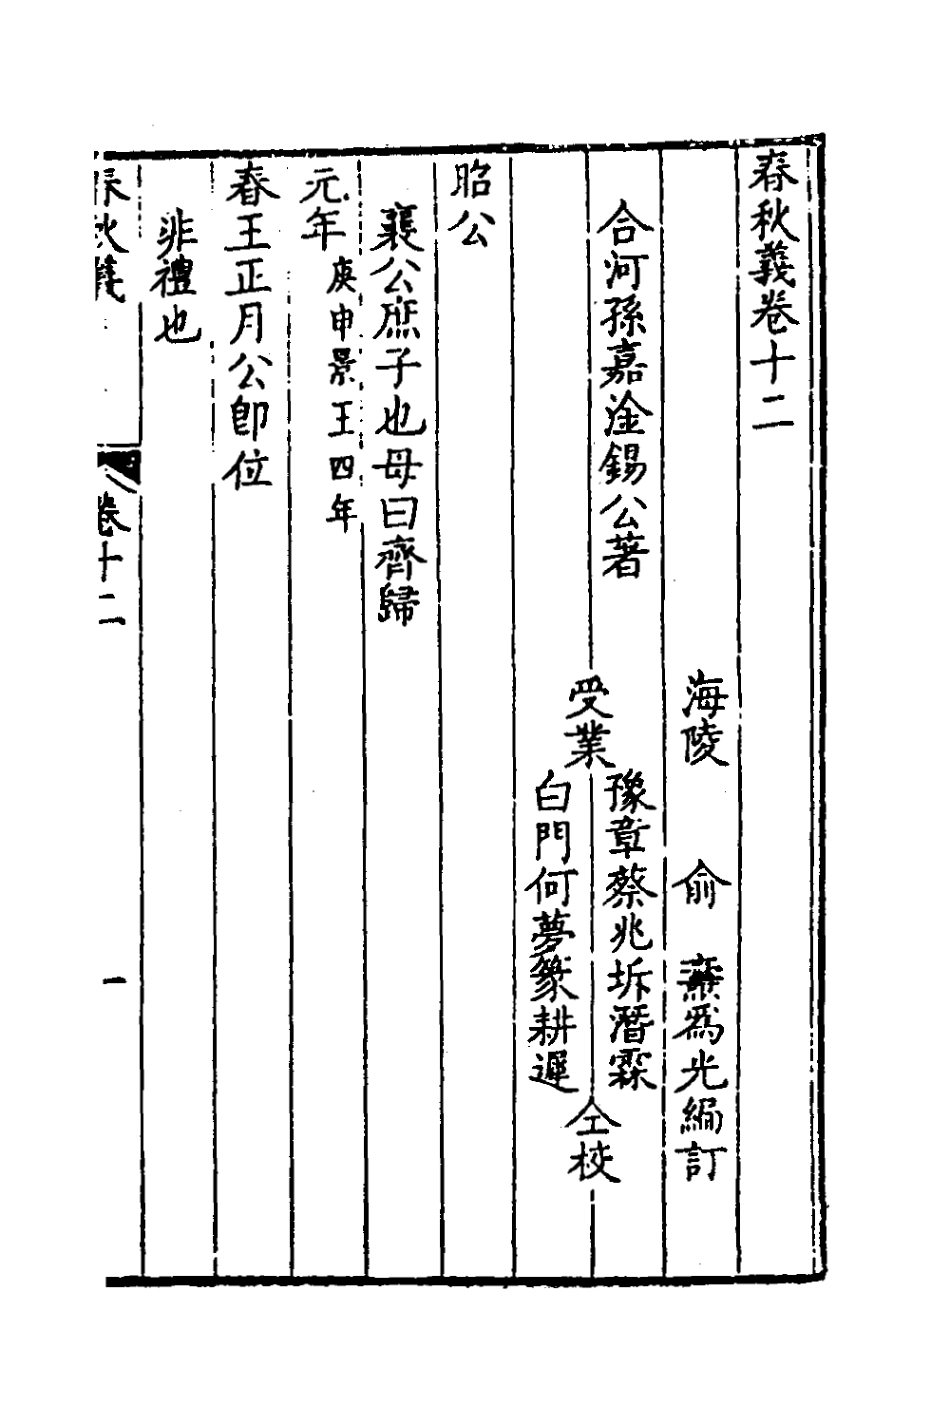 春秋義卷十二
海陵 俞 燾為光編訂
合河孫嘉淦錫公著
受業
豫章蔡兆坼潛霖
白門何夢篆耕遲
仝校
昭公
襄公庶子也母曰齊歸
元年 庚申景王四年
春王正月公即位
非禮也
春秋義 卷十二 一